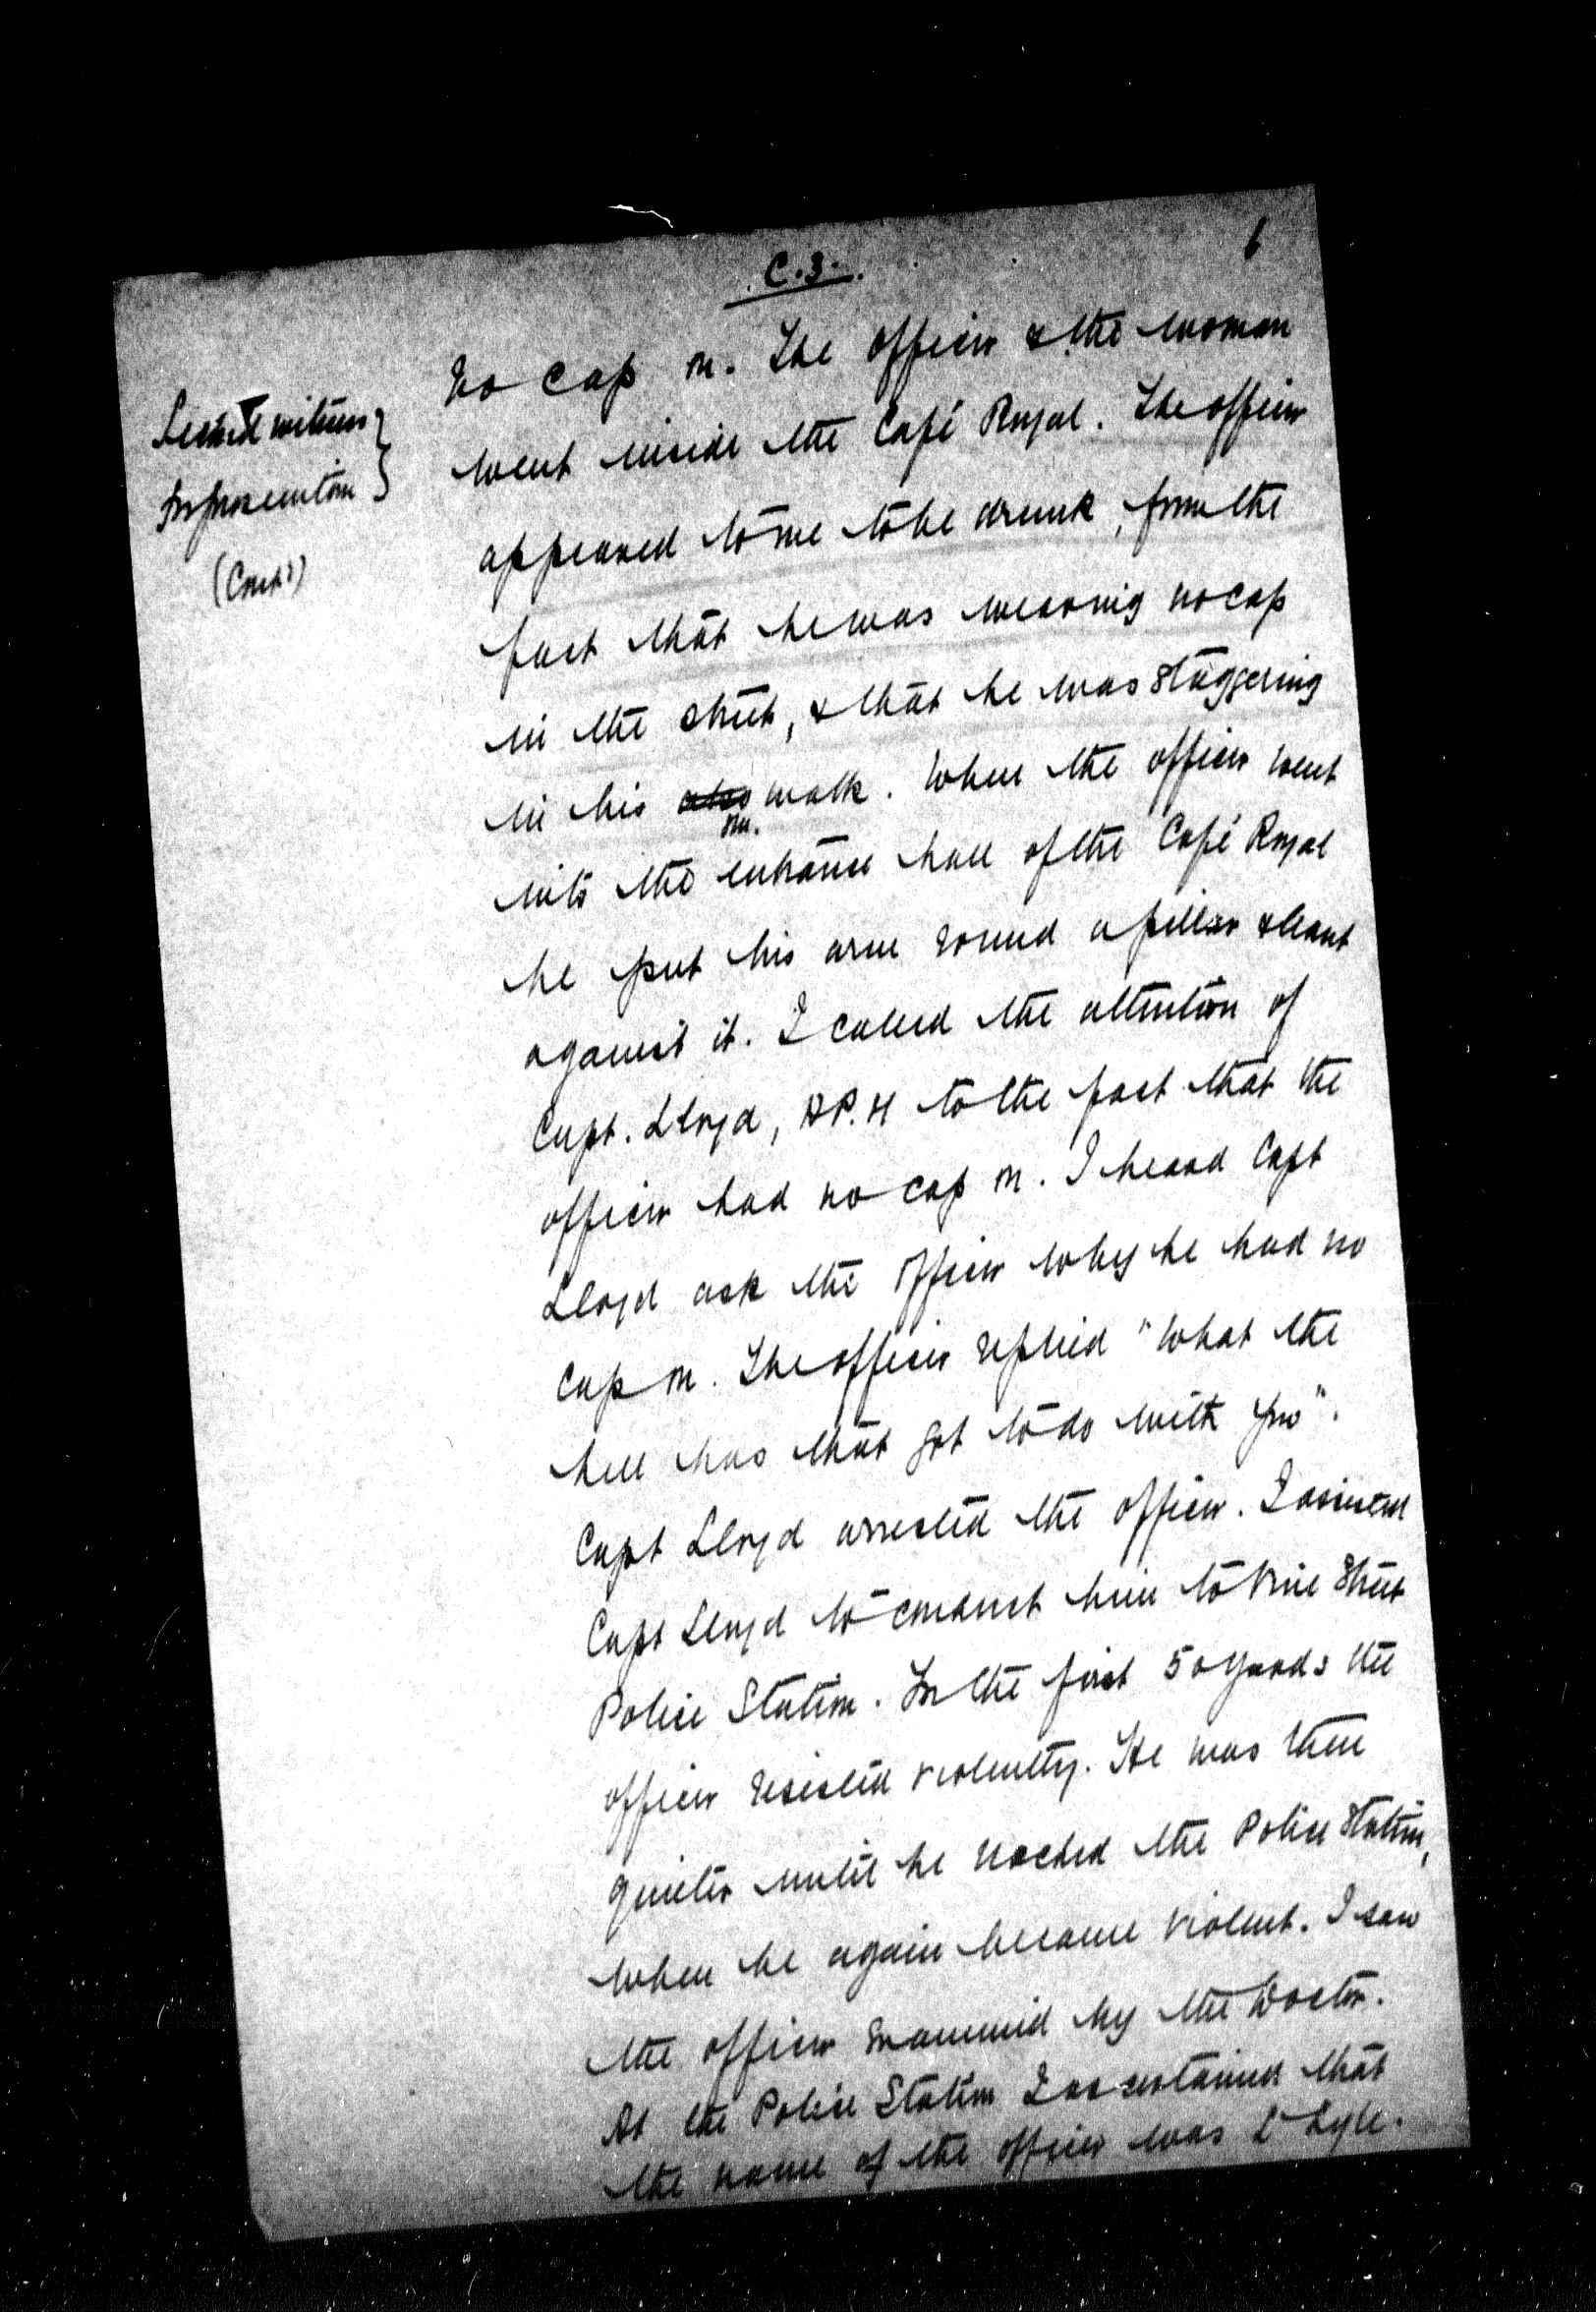 C.3.
6
Second witness
for prosecution
(Contd)
no cap on. The officer & the woman
went inside the Café Royal. The officer
appeared to me to be drunk, from the
fact that he was wearing no cap
in the street, & that he was staggering
in his walk. When the officer went
into the entrance hall of the Café Royal
he put his arm round a pillar & leant
against it. I called the attention of
Capt. Lloyd, A.P.M to the fact that the
officer had no cap on. I heard Capt
Lloyd ask the officer why he had no
cap on. The officer replied "What the
hell has that got to do with you".
Capt Lloyd arrested the officer. I assisted
Capt Lloyd to conduct him to Vine Street
Police Station. In the first 50 yards the
officer resisted violently. He was then
quieter until he reached the Police Station,
when he again became violent. I saw
the officer examined by the Doctor.
At the Police Station I ascertained that
the name of the officer was Lt Lyle.